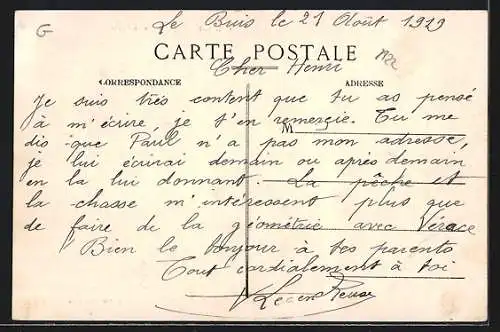 G
Le Buis le 21 Août 1919
CARTE POSTALE
Cher Henri
CORRESPONDANCE
ADRESSE
Je suis très content que tu as pensé
à m'écrire, je t'en remercie. Tu me
M
dis que Paul n'a pas mon adresse,
je lui écrirai demain ou après demain
en la lui donnant. La pêche et
la chasse m'intéressent plus que
de faire de la géométrie avec
Bien le bonjour à tes parents
Tout cordialement à toi